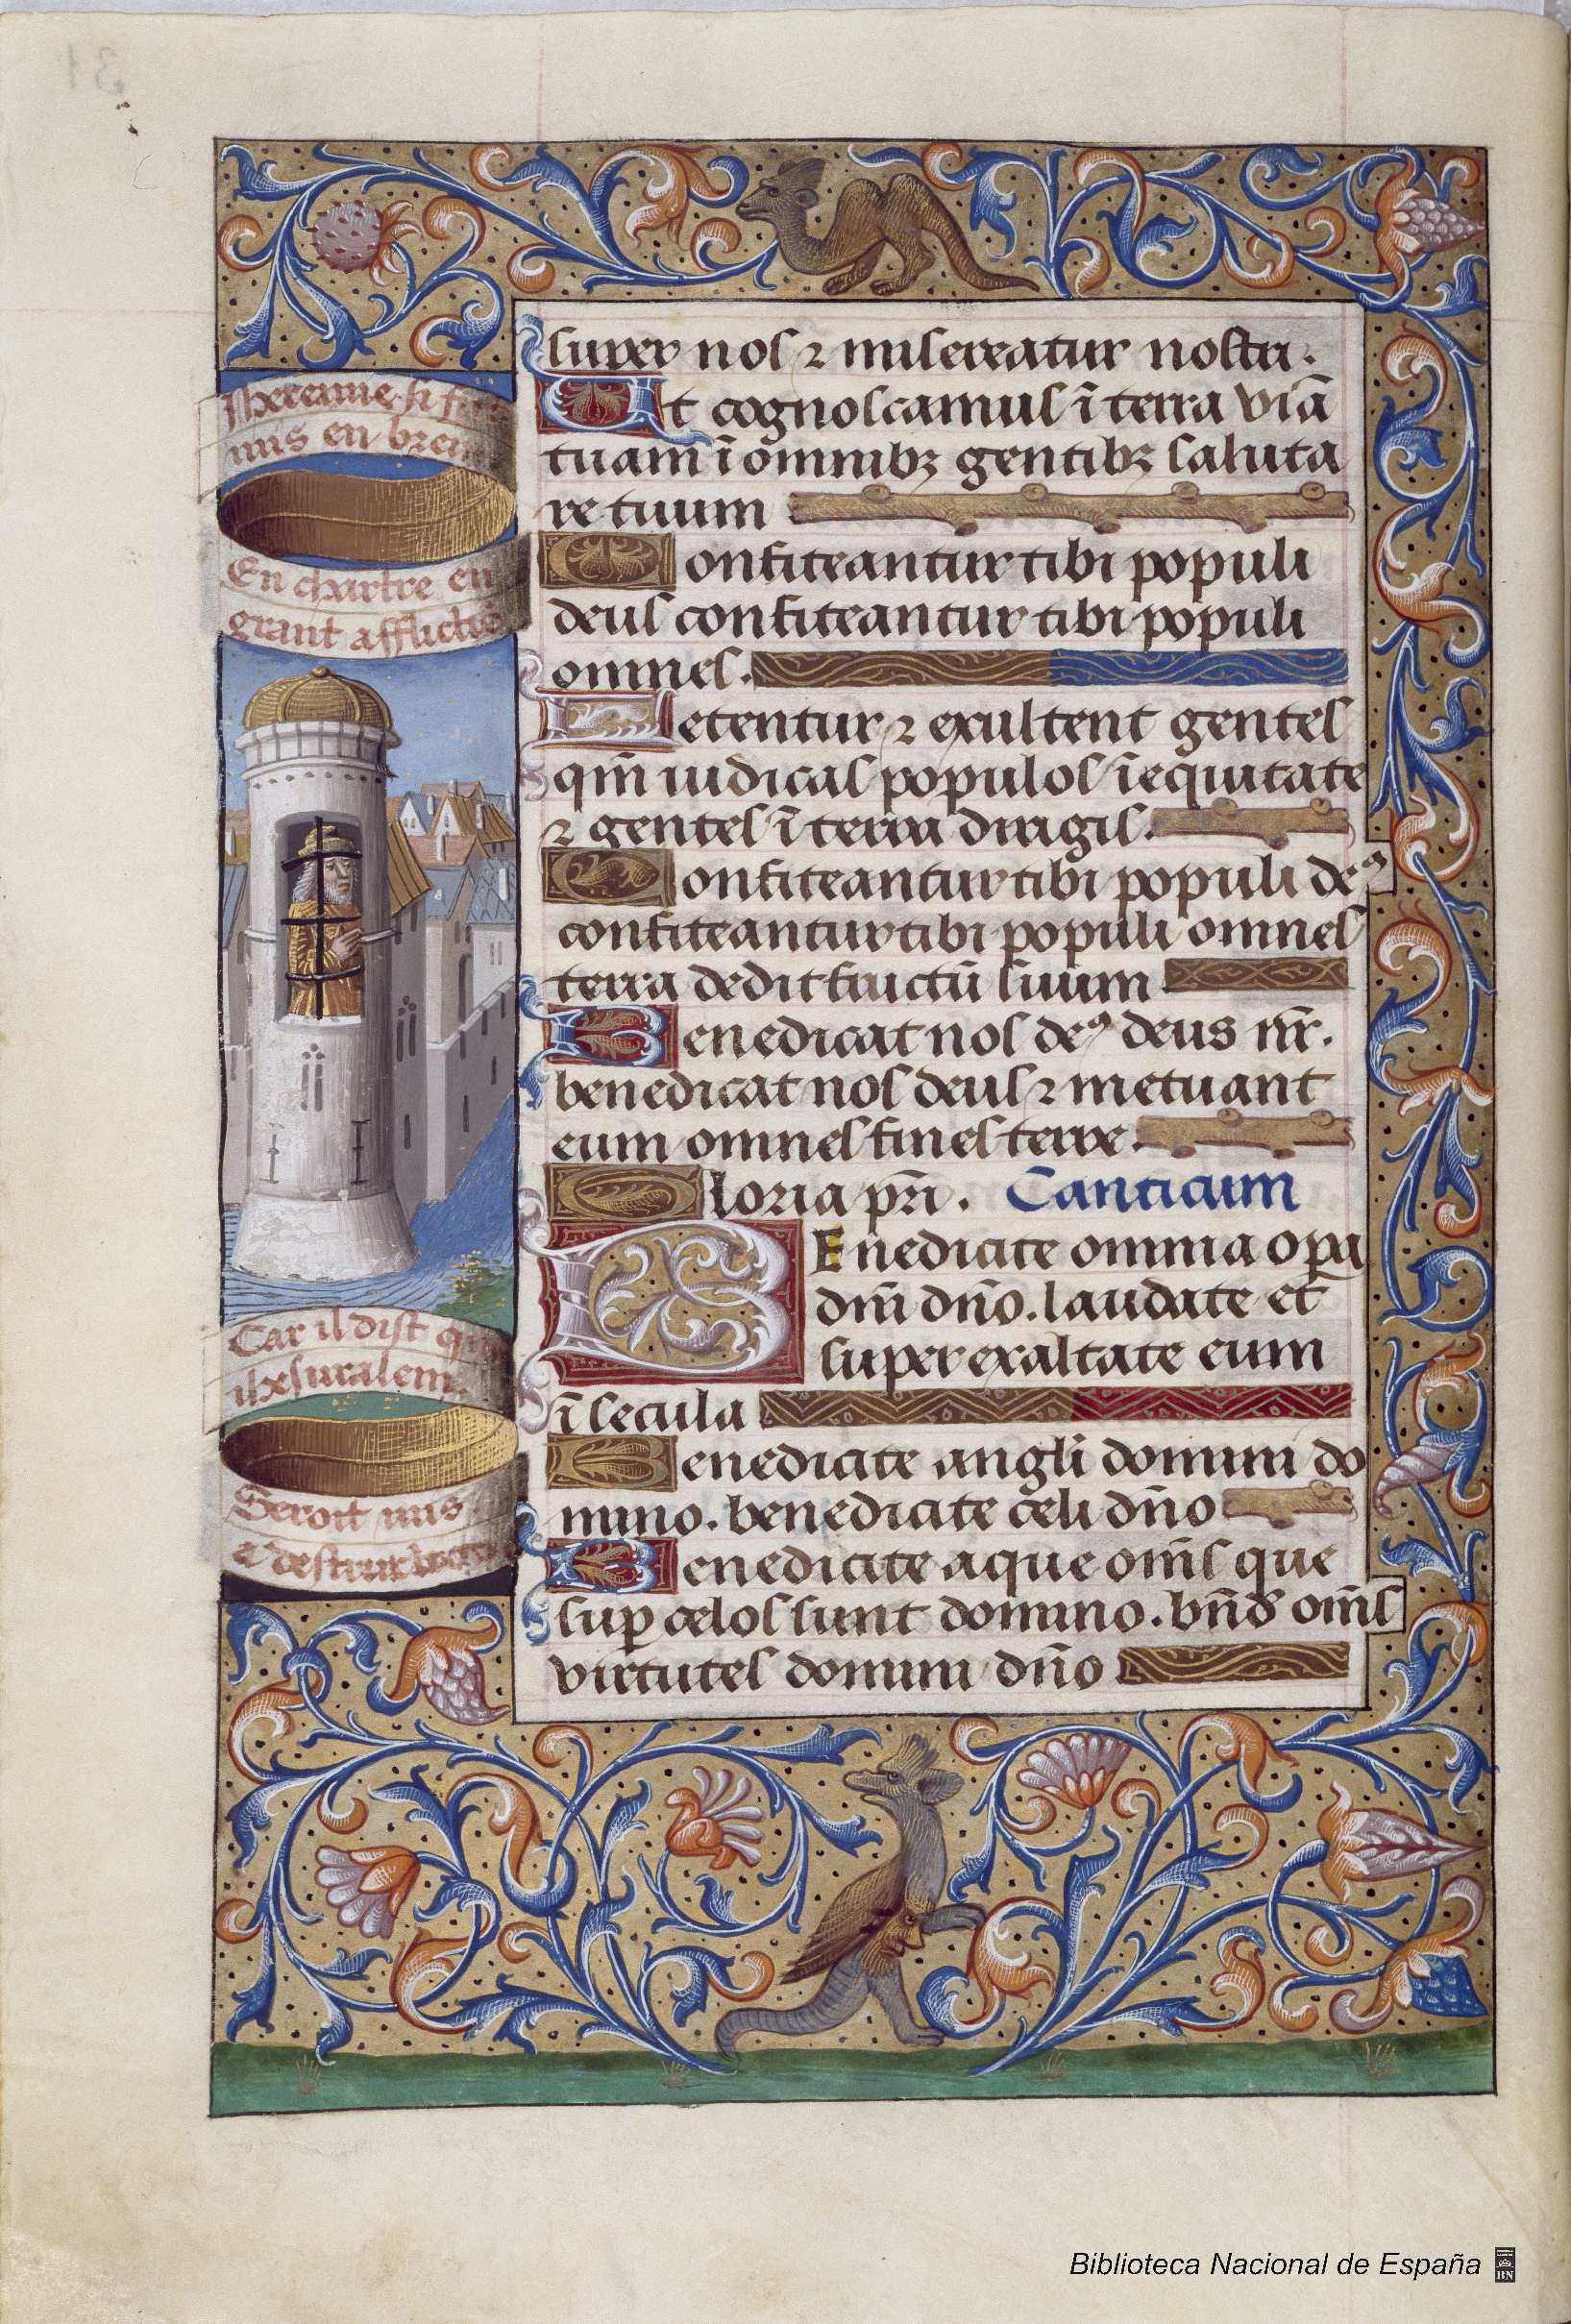 super nos ⁊ misereatur nostri.
Ut cognoscamus ī terra viā
tuam ī omnibꝫ gentibꝫ saluta
re tuum
Confiteantur tibi populi
deus confiteantur tibi populi
omnes.
Letentur ⁊ exultent gentes
qm̄ iudicas populos ī equitate
⁊ gentes ī terra dirigis.
Confiteantur tibi populi deꝰ
confiteantur tibi populi omnes
terra dedit fructū suum
Benedicat nos deꝰ deus nr̄.
benedicat nos deus ⁊ metuant
eum omnes fines terre.
Gloria pr̄i. Canticum
BEnedicite omnia oꝑa
dm̄i dn̄o. laudate et
super exaltate eum
ī secula
Benedicite angl̄i domini do
mino. benedicite celi dn̄o
Benedicite aque om̄s que
suꝑ celos sunt domino. bn̄d om̄s
virtutes domini dn̄o
Jheremie si fut
mis en
En chartre en
grant afflictiō
Car il dist que
iherusalem
Seroit mis
a destruction
31
Biblioteca Nacional de España
BN